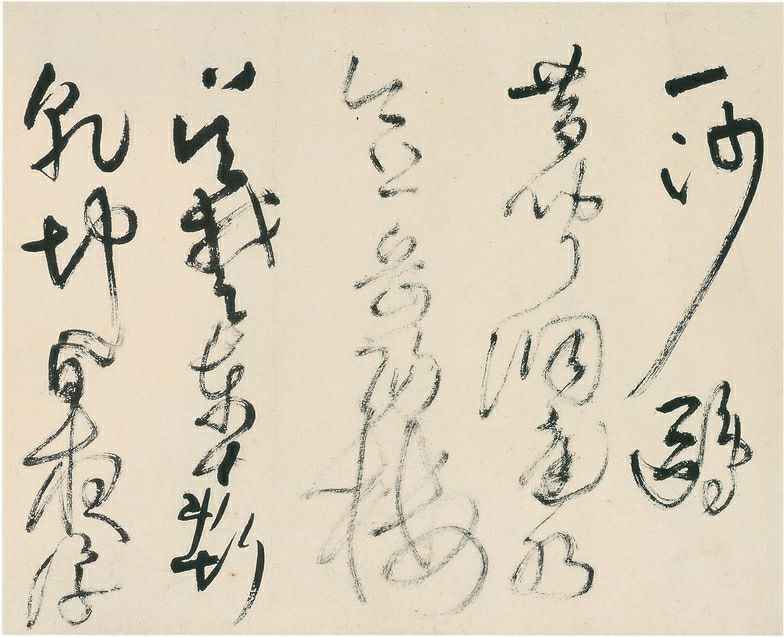 一沙鷗
昔聞洞庭水
今上岳陽樓
吳楚東南坼
乾坤日夜浮